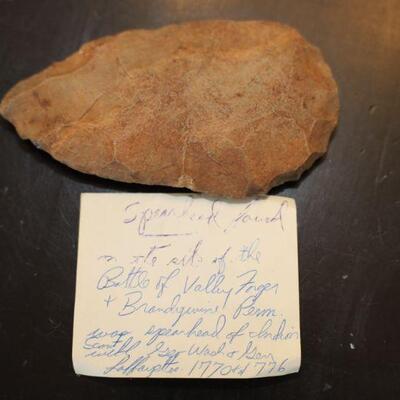 Spearhead found
on the site of the
Battle of Valley Forge
+ Brandywine Penn.
was spearhead of Indian
Scout with Gen Wash + Gen
Laffayette 1770